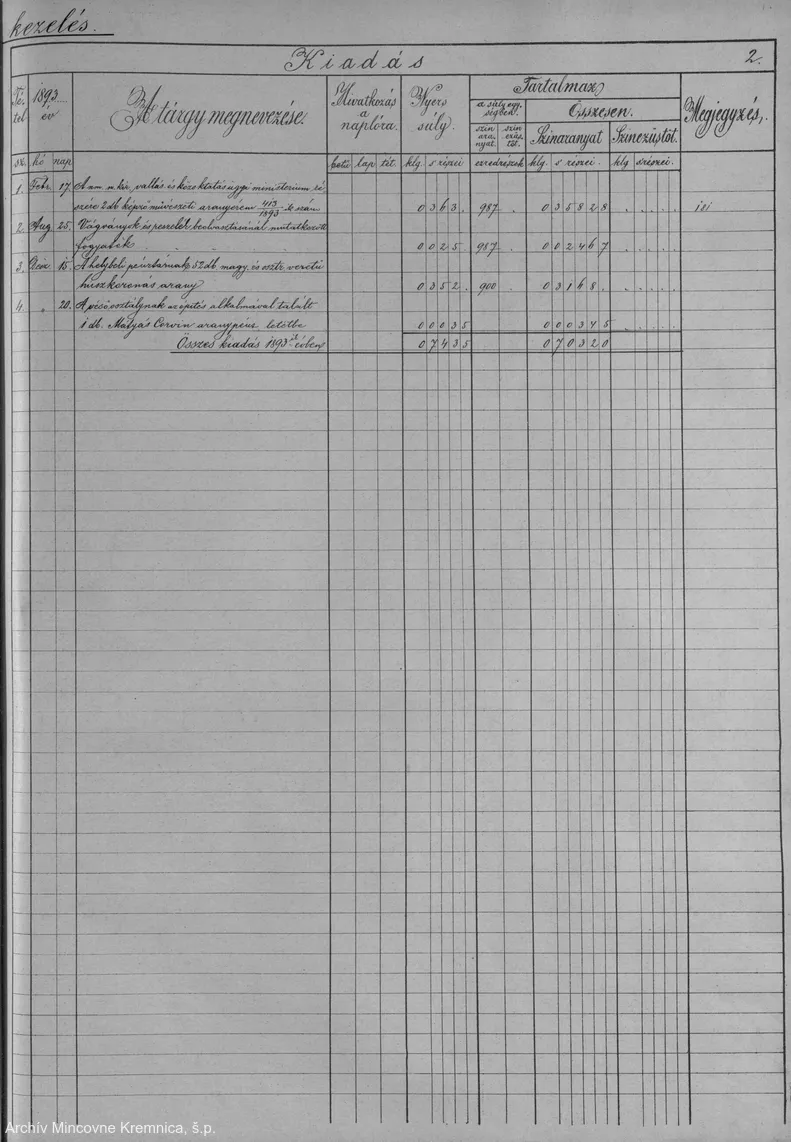 kezelés.
Kiadás
2.
Té-
tel
1893
év
A tárgy megnevezése.
Hivatkozás
a
naplóra.
Nyers
súly.
Tartalmaz
a súlyegy-
ségben.
Összesen.
szin
ara-
nyat.
szin
ezüs-
töt.
Szinaranyat
Szinezüstöt.
Megjegyzés.
sz. hó nap
betü lap tét. klg. s részei ezredrészek klg. s részei. klg s részei.
1. Febr. 17. A m. kir. vallás és közoktatásügyi ministerium ré-
szére 2 db képzőművészeti aranyérem 413/1893 sz. 0 3 6 3 . 987 . 0 3 5 8 2 8 . . . . .
2. Aug. 25. Vágványok és beolvasztásánál mutatkozott
fogyaték . . . 0 0 2 5 987 . 0 0 2 4 6 7 . . . . .
3. 15. A helybeli pénztárnak 52 db. magy. és osztr. veretü
húszkoronás arany 0 3 5 2 . 900 0 3 1 6 8 . . . . . .
4. " 20. alkalmával talált
1 db. Mátyás Corvin aranypénz letétbe 0 0 0 3 5 0 0 0 3 4 5 . . . . .
Összes kiadás 1893 ik évben 0 7 4 3 5 0 7 0 3 2 0
Archív Mincovne Kremnica, š.p.